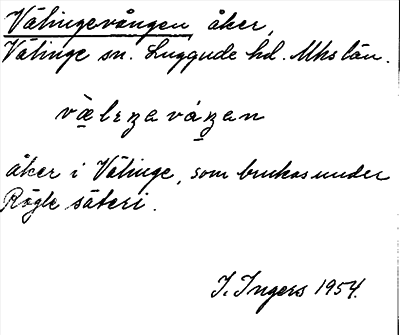 Välingevången, åker,
Välinge sn. Luggude hd. Mhs län.
vä̀lɪŋaváŋan
åker i Välinge, som brukas under
Rögle säteri.
I. Ingers 1954.